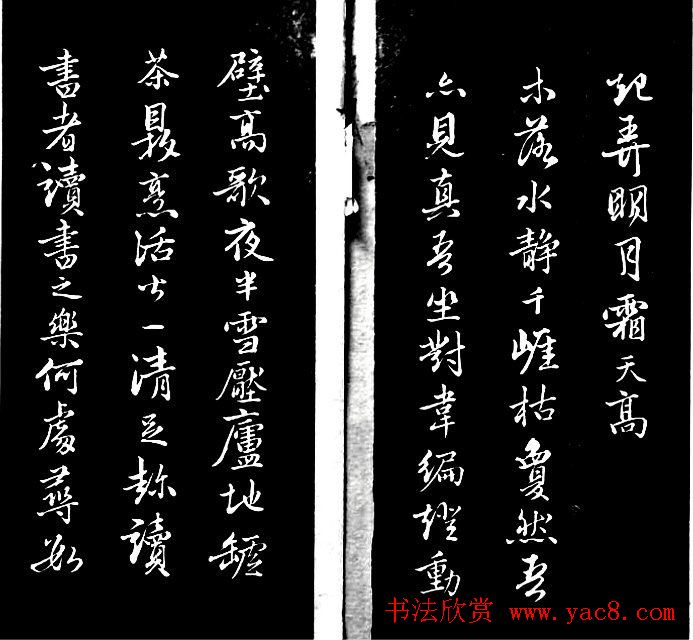 起弄明月霜天高
木落水靜千崖枯夐然吾
亦見真吾坐對韋編燈動
壁高歌夜半雪壓廬地爐
茶鼎烹活火一清足称讀
書者讀書之樂何處尋数
书法欣赏 www.yac8.com